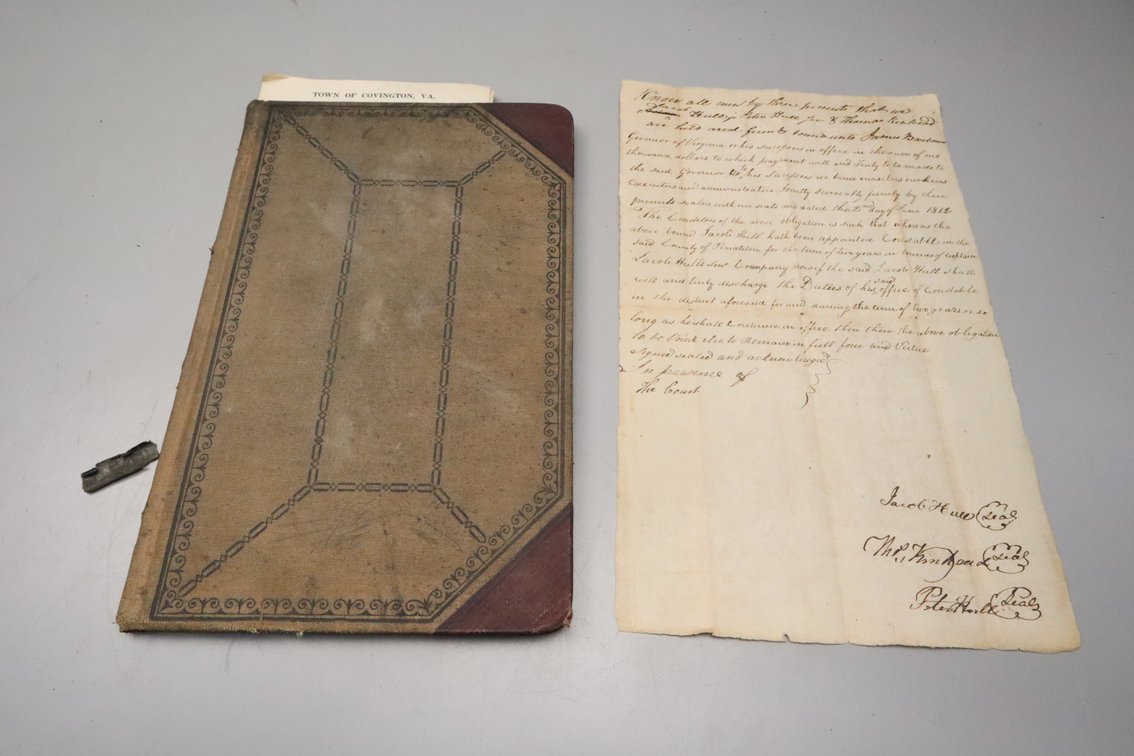 TOWN OF COVINGTON, VA.
Know all men by these presents that we
Jacob Hull Peter Hull Jr & Thomas Kinkead
are held and firmly bound unto James Barbour
Governor of Virginia or his successors in office in the sum of one
thousand dollars to which payment well and truly to be made to
the said Governor & his Successors we bind ourselves our heirs
Executors and administrators Jointly severally firmly by these
presents sealed with our seals and dated the 2nd day of June 1812
The Condition of the above obligation is such that whereas the
above bound Jacob Hull hath been appointed Constable in the
said County of Pendleton for the term of two years in bounds of Captain
Jacob Hull's Company now if the said Jacob Hull shall
well and truly discharge the Duties of his said office of Constable
in the district aforesaid for and during the term of two years or so
long as he shall Continue in office then the above obligation
to be Void else to Remain in full force and Virtue
Signed sealed and acknowledged
In presence of
the Court
Jacob Hull Seal
Thos. Kinkead Seal
Peter Hull Seal